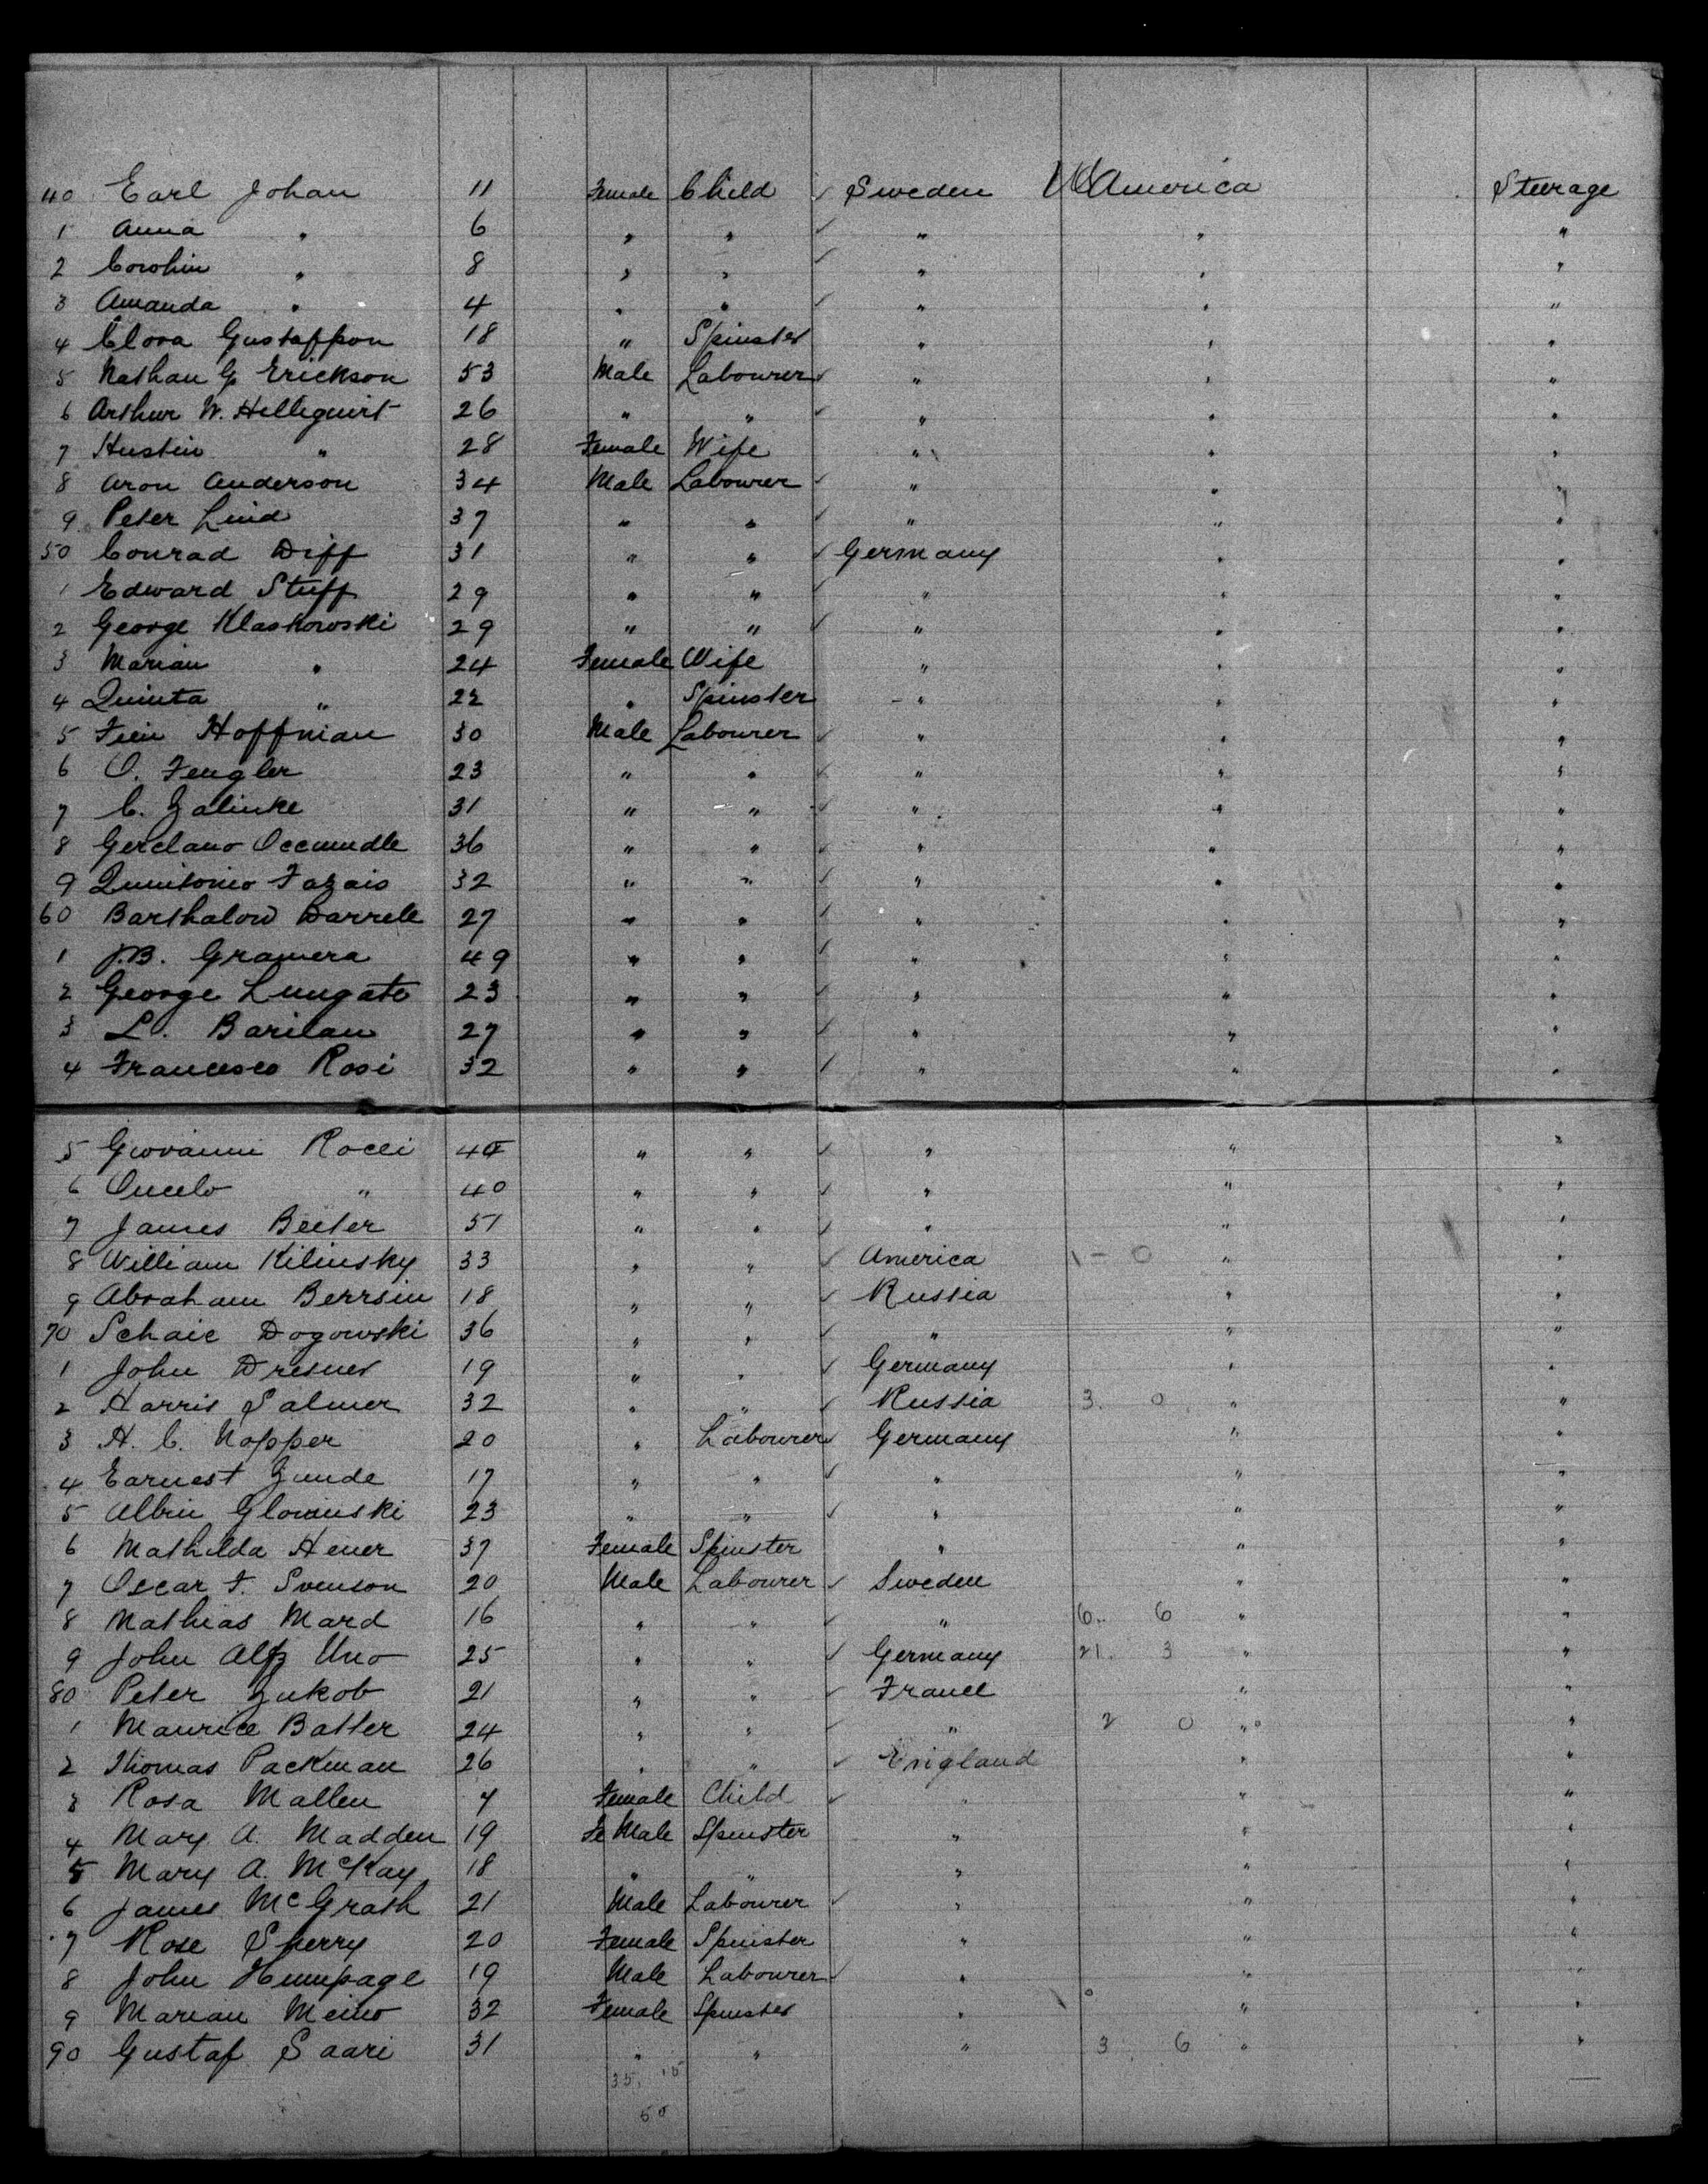 40 Earl Johan 11 Female Child ✓ Sweden U S America Steerage
1 Anna " 6 " " ✓ " " "
2 Corohin " 8 " " ✓ " " "
3 Amanda " 4 " " ✓ " " "
4 Clora Gustaffson 18 " Spinster " " "
5 Nathan G Erickson 53 Male Labourer ✓ " " "
6 Arthur W. Hellequirt 26 " " ✓ " " "
7 Hustin " 28 Female Wife " " "
8 Aron Anderson 34 Male Labourer ✓ " " "
9 Peter Lind 37 " " ✓ " " "
50 Conrad Diff 31 " " ✓ Germany " "
1 Edward Stuff 29 " " ✓ " " "
2 George Klaskowski 29 " " ✓ " " "
3 Marian " 24 Female Wife " " "
4 Quinta " 22 " Spinster " " "
5 Hoffman 30 Male Labourer ✓ " " "
6 O. Fengler 23 " " ✓ " " "
7 C. Zalinke 31 " " ✓ " " "
8 Gerclano 36 " " ✓ " " "
9 Quintonio Fazais 32 " " ✓ " " "
60 Barthalow Darrell 27 " " ✓ " " "
1 J.B. Gramera 49 " " ✓ " " "
2 George Lungate 23 " " ✓ " " "
3 L. Barilan 27 " " ✓ " " "
4 Francesco Rosi 32 " " ✓ " " "
5 Giovanni Rocci " " ✓ " " "
6 " 40 " " ✓ " " "
7 James Beeter 51 " " ✓ " " "
8 William Kilinsky 33 " " ✓ America 1 - 0 " "
9 Abraham Berrsin 18 " " ✓ Russia " "
70 Schaie Dogowski 36 " " ✓ " " "
1 John Dresner 19 " " ✓ Germany " "
2 Harris Palmer 32 " " ✓ Russia 3. 0. " "
3 H. C. Nopper 20 " Labourer ✓ Germany " "
4 Earnest Zunde 17 " " ✓ " " "
5 Albin Glowinski 23 " " ✓ " " "
6 Mathilda Hener 37 Female Spinster " " "
7 Oscar F. Svenson 20 Male Labourer ✓ Sweden " "
8 Mathias Mard 16 " " ✓ " 6.. 6 " "
9 John Uno 25 " " ✓ Germany 21. 3 " "
80 Peter Zukob 21 " " ✓ France " "
1 Maurice Batter 24 " " ✓ " 2 0 " "
2 Thomas Packman 26 " " ✓ England " "
3 Rosa Mallen 7 Female Child ✓ " " "
4 Mary A. Madden 19 Fe Male Spinster " " "
5 Mary A. McKay 18 " " " " "
6 James McGrath 21 Male Labourer ✓ " " "
7 Rose Sherry 20 Female Spinster " " "
8 John Humpage 19 Male Labourer ✓ " " "
9 Marian Meino 32 Female Spinster " " "
90 Gustaf Saari 31 " " " 3. 6 " "
35. 15
60